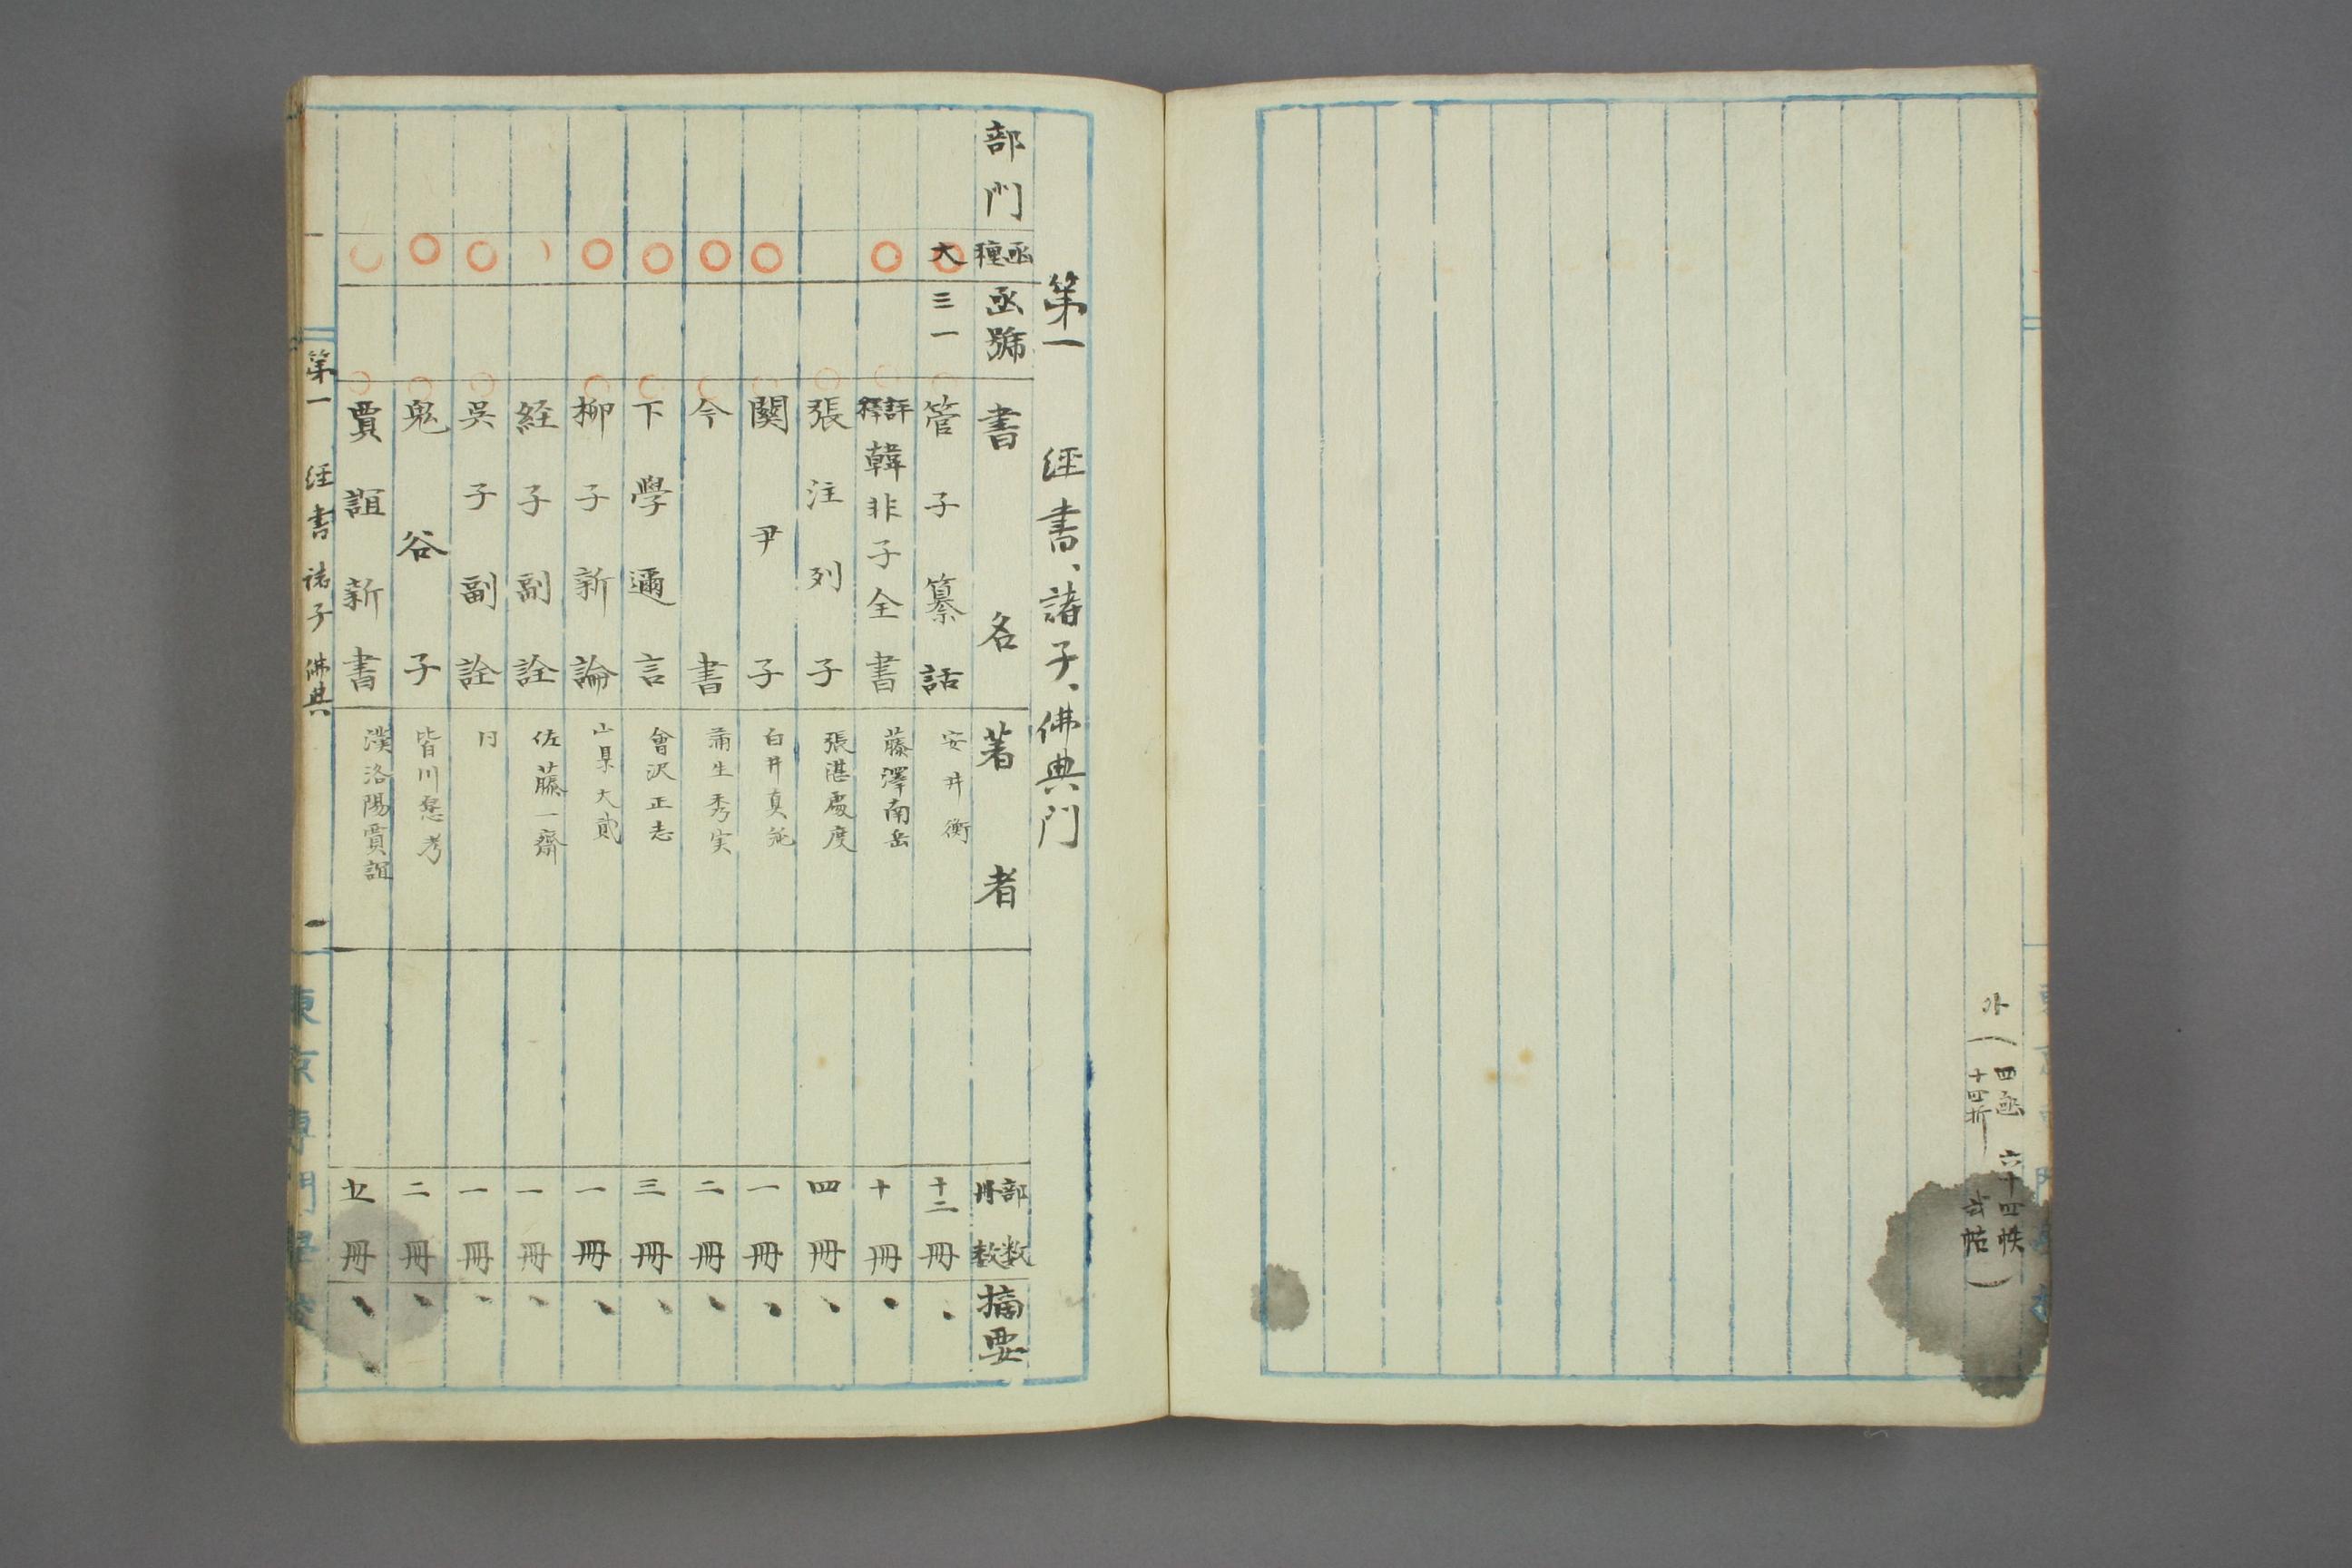 外（四函 六十四帙
十四折 弐帖）
第一 經書、諸子、佛典門
部門 函種 函號 書名 著者 部数 冊数 摘要
大 三一 管子纂詁 安井衡 十二冊 、
評釋韓非子全書 藤澤南岳 十冊 、
張注列子 張湛處度 四冊 、
關尹子 白井真純 一冊 、
今書 蒲生秀実 二冊 、
下學邇言 會沢正志 三冊 、
柳子新論 山県大貳 一冊 、
経子副詮 佐藤一齋 一冊 、
吳子副詮 同 一冊 、
鬼谷子 皆川愿考 二冊 、
賈誼新書 漢洛陽賈誼 五冊 、
第一 経書 諸子 佛典 一
東京專門學校